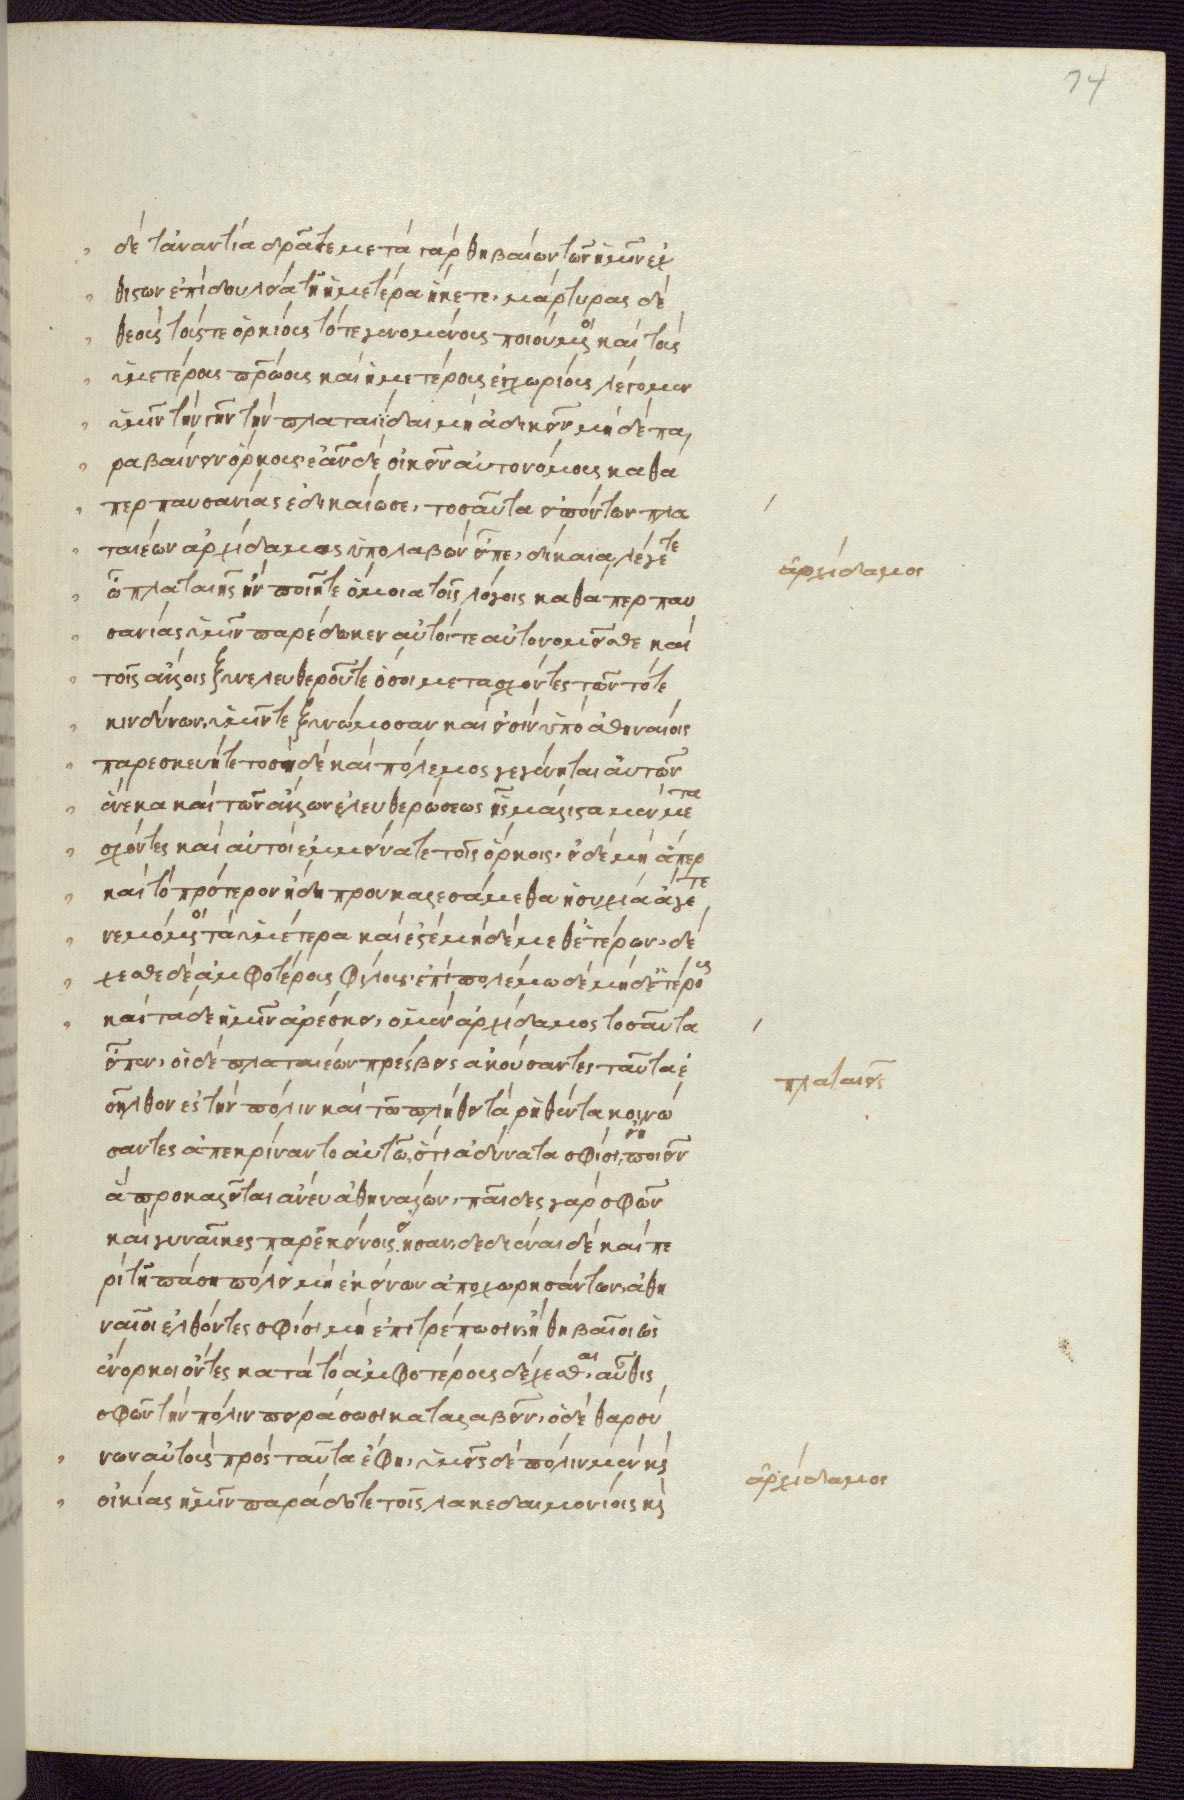 74
δὲ τἀναντία δρᾶτε μετὰ γὰρ θηβαίων τῶν ἡμῖν ἐχ
θίστων ἐπὶ δουλεία τῆ ἡμετέρα ἥκετε, μάρτυρας δὲ
θεοὺς τούς τε ὁρκίους τότε γενομένους ποιούμενοι καὶ τοὺς
ὑμετέρους πατρώους καὶ ἡμετέρους ἐγχωρίους λέγομεν
ὑμῖν τὴν γῆν τὴν πλαταιΐδα μὴ ἀδικεῖν μηδὲ πα,
ραβαίνειν ὅρκους, ἐᾶν δὲ οἰκεῖν αὐτονόμους καθά
περ παυσανίας ἐδικαίωσε, τοσαῦτα εἰπόντων πλα
ταιέων ἀρχίδαμος ὑπολαβὼν εἶπε, δίκαια λέγετε
ἀρχίδαμος
ὦ πλαταιῆς ἢν ποιῆτε ὅμοια τοῖς λόγοις καθάπερ παυ
σανίας ὑμῖν παρέδωκεν αὐτοί τε αὐτονομεῖσθε καὶ
τοὺς ἄλλους ξυνελευθεροῦτε ὅσοι μετασχόντες τῶν τότε
κινδύνων, ὑμῖν τε ξυνώμοσαν καὶ εἰσὶν ὑπὸ ἀθηναίοις
παρεσκευή τε τοσήδε καὶ πόλεμος γεγένηται αὐτῶν
ἕνεκα καὶ τῶν ἄλλων ἐλευθερώσεως ἧς μάλιστα μὲν μετα
σχόντες καὶ αὐτοὶ ἐμμείνατε τοῖς ὅρκοις, εἰ δὲ μὴ ἅπερ
καὶ τὸ πρότερον ἤδη προυκαλεσάμεθα ἡσυχίαν ἄγετε,
νεμόμενοι τὰ ὑμέτερα καὶ ἔστε μηδὲ μεθ' ἑτέρων, δέ
χεσθε δὲ ἀμφοτέρους φίλους, ἐπὶ πολέμω δὲ μηδ' ἑτέρους
καὶ τάδε ἡμῖν ἀρέσκει, ὁ μὲν ἀρχίδαμος τοσαῦτα
εἶπεν, οἱ δὲ πλαταιέων πρέσβεις ἀκούσαντες ταῦτα ἐ
πλαταιεῖς
σῆλθον ἐς τὴν πόλιν καὶ τῶ πλήθει τὰ ῥηθέντα κοινώ
σαντες ἀπεκρίναντο αὐτῶ, ὅτι ἀδύνατα σφίσιν εἴη ποιεῖν
ἃ προκαλεῖται ἄνευ ἀθηναίων, παῖδες γὰρ σφῶν
καὶ γυναῖκες παρ' ἐκείνοις εἴησαν, δεδιέναι δὲ καὶ πε
ρὶ τῆ πάση πόλει μὴ ἐκείνων ἀποχωρησάντων, ἀθη
ναῖοι ἐλθόντες σφίσι μὴ ἐπιτρέπωσιν, ἢ θηβαῖοι ὡς
ἔνορκοι ὄντες κατὰ τὸ ἀμφοτέρους δέχεσθαι, αὖθις
σφῶν τὴν πόλιν πειράσωσι καταλαβεῖν, ὁ δὲ θαρσύ
νων αὐτοὺς πρὸς ταῦτα ἔφη, ὑμεῖς δὲ πόλιν μὲν κὶ
ἀρχίδαμος
οἰκίας ἡμῖν παράδοτε τοῖς λακεδαιμονίοις κὶ